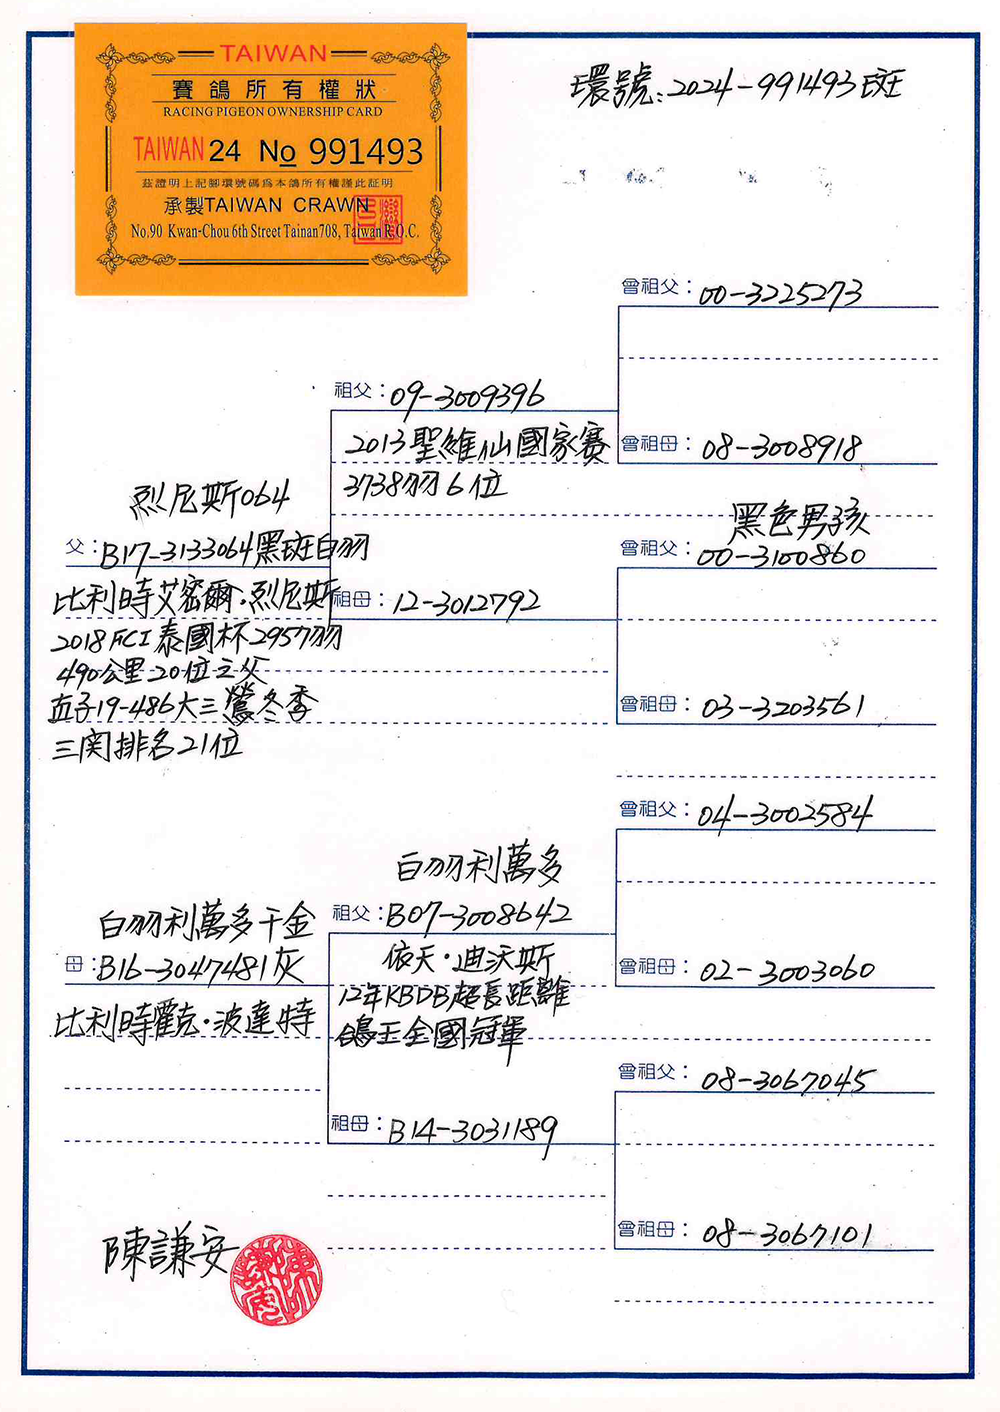 TAIWAN
賽鴿所有權狀
RACING PIGEON OWNERSHIP CARD
TAIWAN 24 No 991493
茲證明上記腳環號碼為本鴿所有權謹此証明
承製TAIWAN CRAWN
No.90 Kwan-Chou 6th Street Tainan708, Taiwan R.O.C.
環號:2024-991493斑
曾祖父:00-3225273
祖父:09-3009396
2013聖維仙國家賽
3738羽6位
曾祖母:08-3008918
烈尼斯064
父:B17-3133064黑斑白羽
比利時艾密爾·烈尼斯
2018 FCI 泰國杯2957羽
490公里20位之父
直子19-486大三鶯冬季
三関排名21位
黑色男孩
曾祖父:00-3100860
祖母:12-3012792
曾祖母:03-3203561
曾祖父:04-3002584
白羽利萬多
祖父:B07-3008642
依天·迪沃斯
12年KBDB超長距離
鴿王全國冠軍
曾祖母:02-3003060
白羽利萬多千金
母:B16-3047481灰
比利時霍克·波達特
曾祖父:08-3067045
祖母:B14-3031189
曾祖母:08-3067101
陳謙安